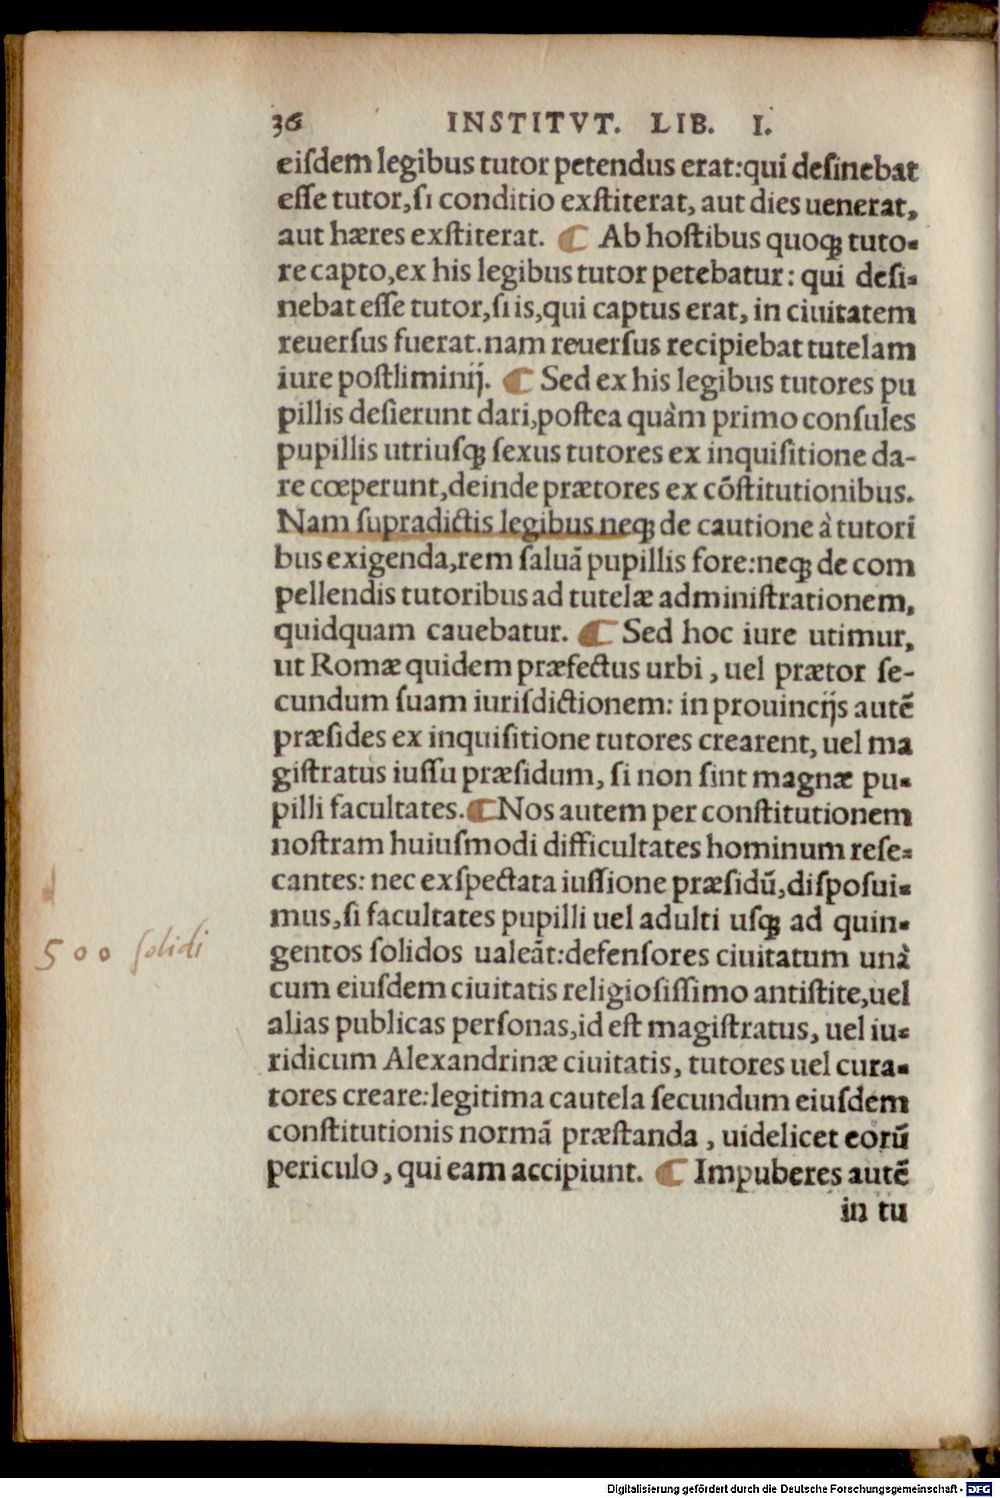 36 INSTITVT. LIB. I.
eiſdem legibus tutor petendus erat:qui deſinebat
eſſe tutor,ſi conditio exſtiterat, aut dies uenerat,
aut hæres exſtiterat. ¶ Ab hoſtibus quoqꝫ tuto-
re capto,ex his legibus tutor petebatur: qui deſi-
nebat eſſe tutor,ſi is,qui captus erat, in ciuitatem
reuerſus fuerat.nam reuerſus recipiebat tutelam
iure poſtliminij. ¶ Sed ex his legibus tutores pu
pillis deſierunt dari,poſtea quàm primo conſules
pupillis utriuſqꝫ ſexus tutores ex inquiſitione da-
re cœperunt,deinde prætores ex cõſtitutionibus.
Nam ſupradictis legibus neqꝫ de cautione à tutori
bus exigenda,rem ſaluã pupillis fore:neqꝫ de com
pellendis tutoribus ad tutelæ adminiſtrationem,
quidquam cauebatur. ¶ Sed hoc iure utimur,
ut Romæ quidem præfectus urbi, uel prætor ſe-
cundum ſuam iuriſdictionem: in prouincijs autẽ
præſides ex inquiſitione tutores crearent, uel ma
giſtratus iuſſu præſidum, ſi non ſint magnæ pu-
pilli facultates. ¶ Nos autem per conſtitutionem
noſtram huiuſmodi difficultates hominum reſe-
cantes: nec exſpectata iuſſione præſidũ,diſpoſui-
mus,ſi facultates pupilli uel adulti uſqꝫ ad quin-
500 ſolidi
gentos ſolidos ualeãt:defenſores ciuitatum unà
cum eiuſdem ciuitatis religioſiſſimo antiſtite,uel
alias publicas perſonas,id eſt magiſtratus, uel iu-
ridicum Alexandrinæ ciuitatis, tutores uel cura-
tores creare:legitima cautela ſecundum eiuſdem
conſtitutionis normã præſtanda, uidelicet eorũ
periculo, qui eam accipiunt. ¶ Impuberes autẽ
in tu
Digitalisierung gefördert durch die Deutsche Forschungsgemeinschaft - DFG